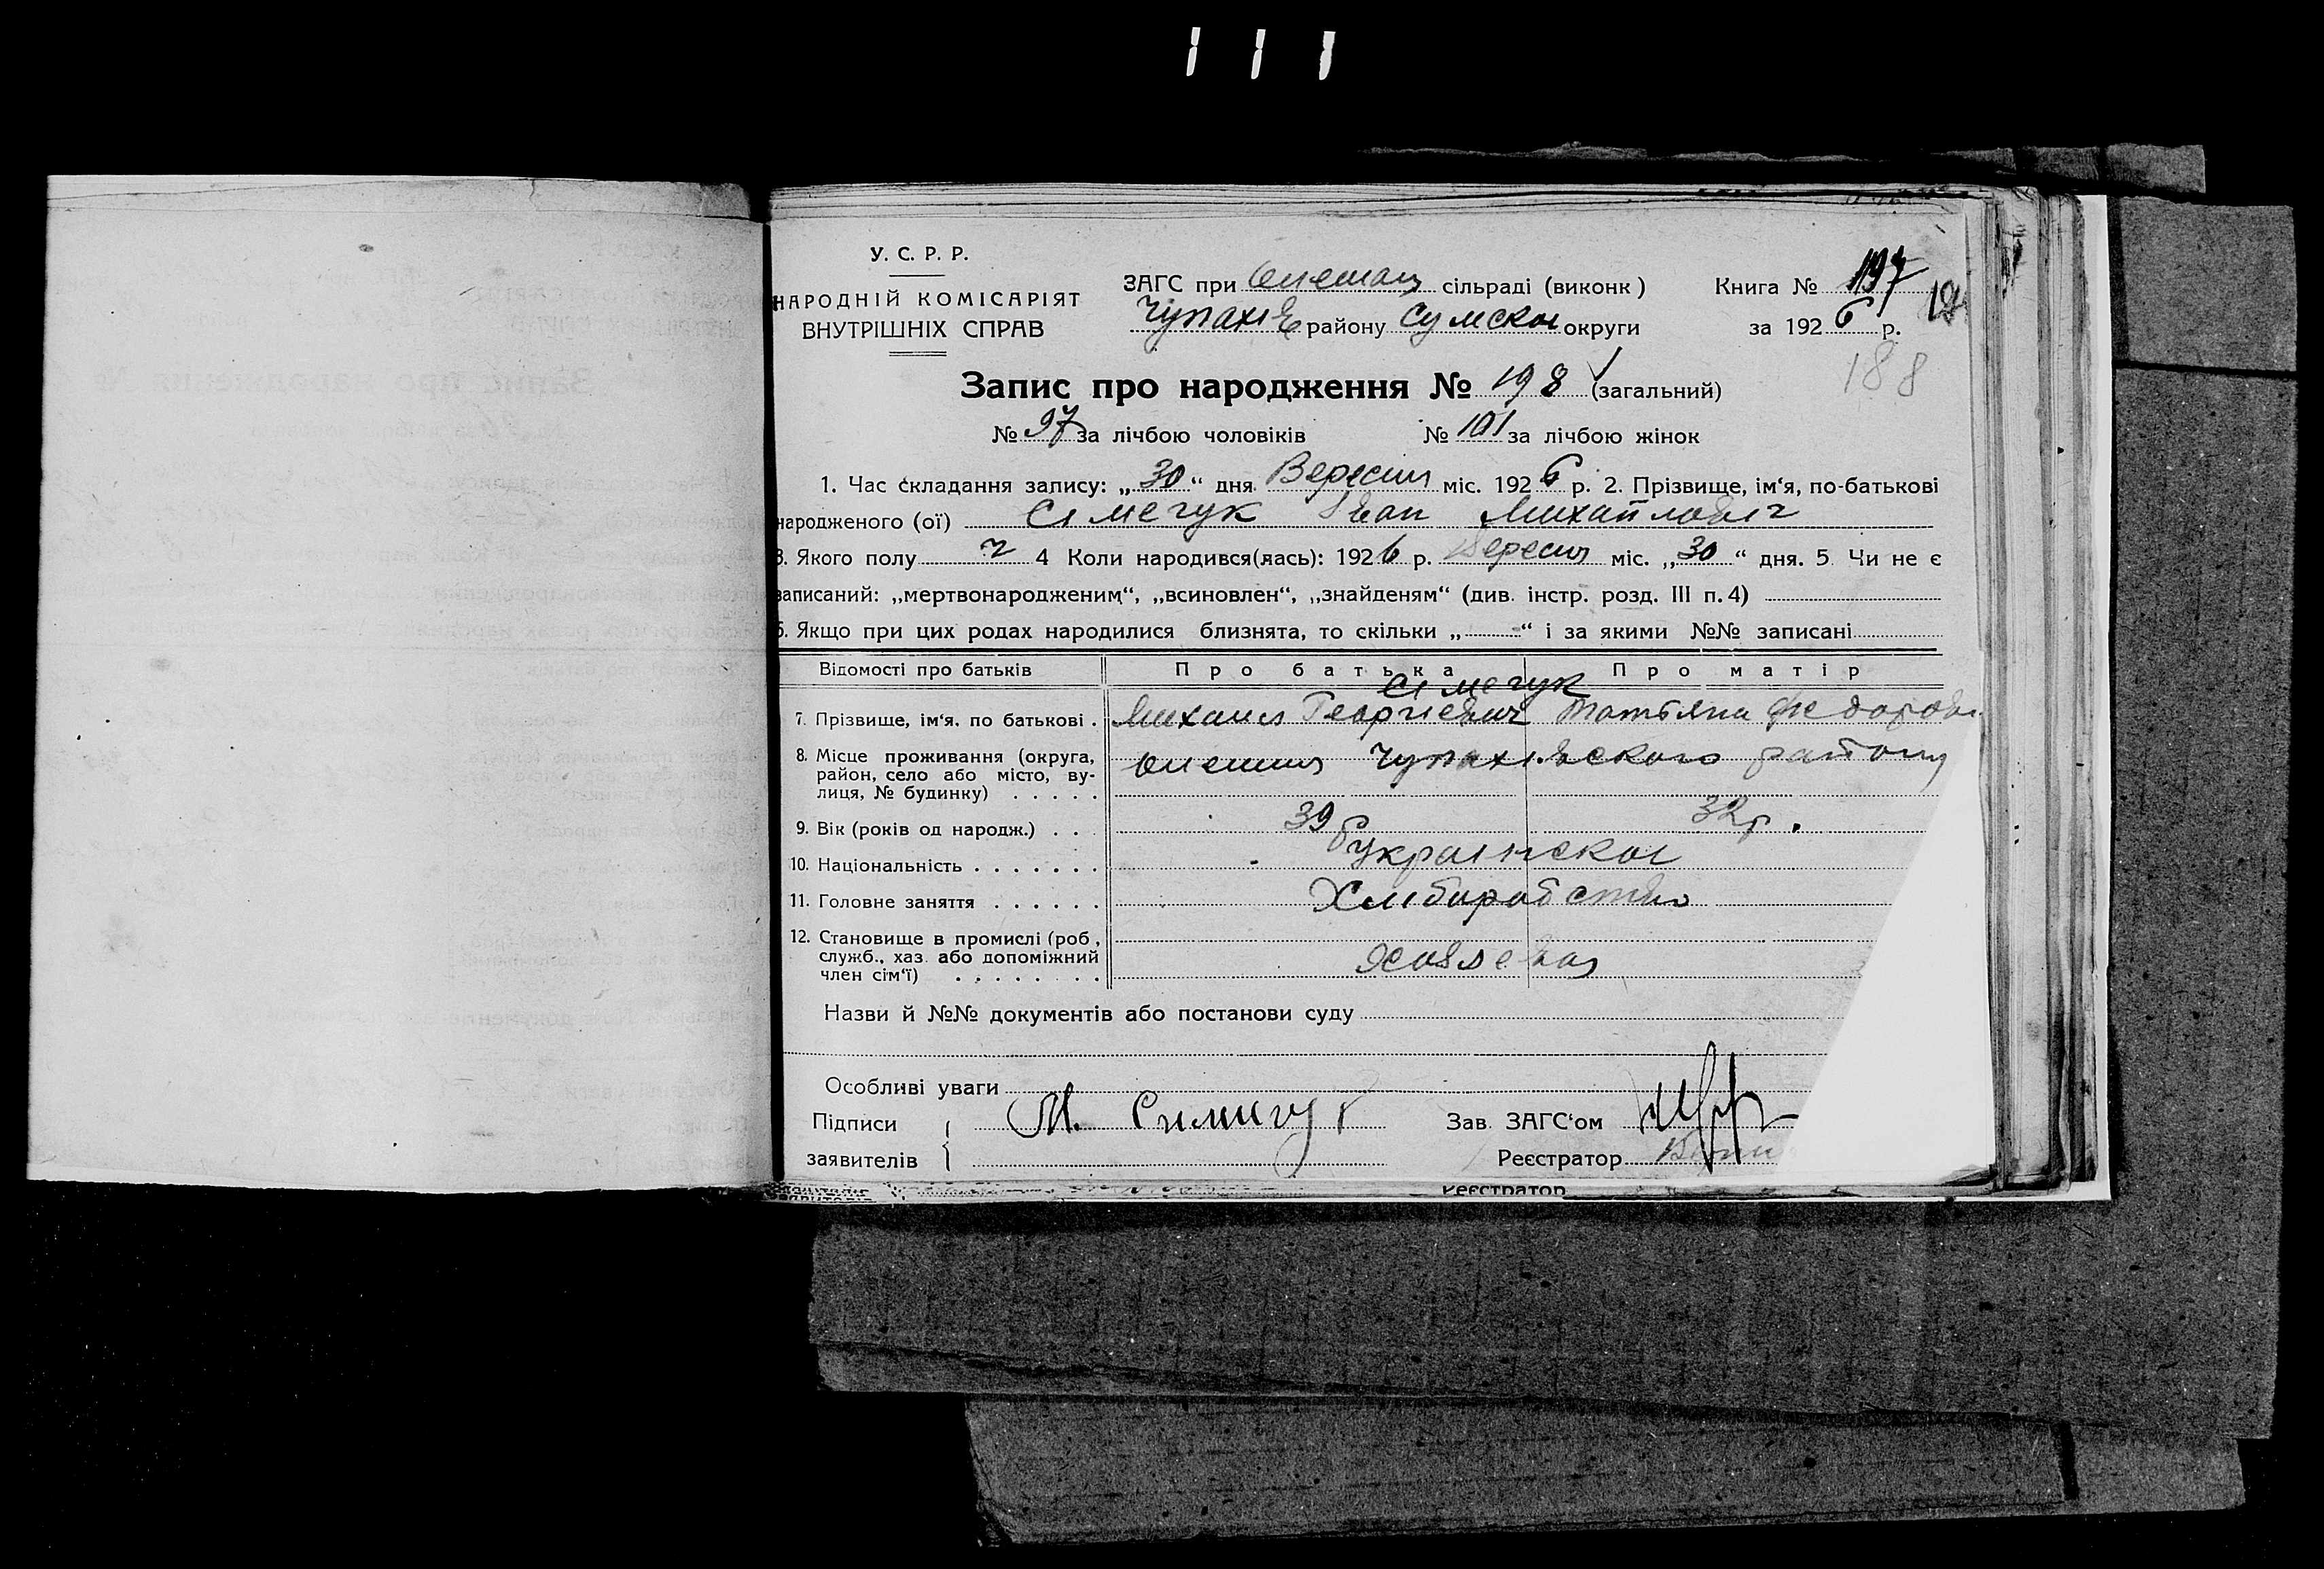 111
У. С. Р. Р.
НАРОДНІЙ КОМІСАРІЯТ
ВНУТРІШНІХ СПРАВ
ЗАГС при сільраді (виконк)
Чупахів району Сумскої округи
Книга № 197
за 1926 р.
188
Запис про народження № 198 (загальний)
№ 97 за лічбою чоловіків № 101 за лічбою жінок
1. Час складання запису: „30“ дня Вересня міс. 1926 р. 2. Прізвище, ім‘я, по-батькові
народженого (ої) Сімечук Іван Михайлович
3. Якого полу ч 4 Коли народився(лась): 1926 р. Вересня міс. „30“ дня. 5. Чи не є
записаний: „мертвонародженим“, „всиновлен“, „знайденям“ (див. інстр. розд. III п. 4)
6. Якщо при цих родах народилися близнята, то скільки „ “ і за якими №№ записані
Відомості про батьків Про батька Про матір
Сімечук
7. Прізвище, ім‘я, по батькові . Михаил Георгіевич Татьяна Федоровн
8. Місце проживання (округа,
район, село або місто, ву-
лиця, № будинку) . . . . . Чупахівского району
9. Вік (років од народж.) . . 39 32 р.
10. Національність . . . . . . . украінскої
11. Головне заняття . . . . . . Хліборобство
12. Становище в промислі (роб.,
служб., хаз. або допоміжний
член сім‘ї) . . . . . . . .
Назви й №№ документів або постанови суду
Особливі уваги
Підписи М. Симичук Зав. ЗАГС‘ом
заявителів Реєстратор
Реєстратор